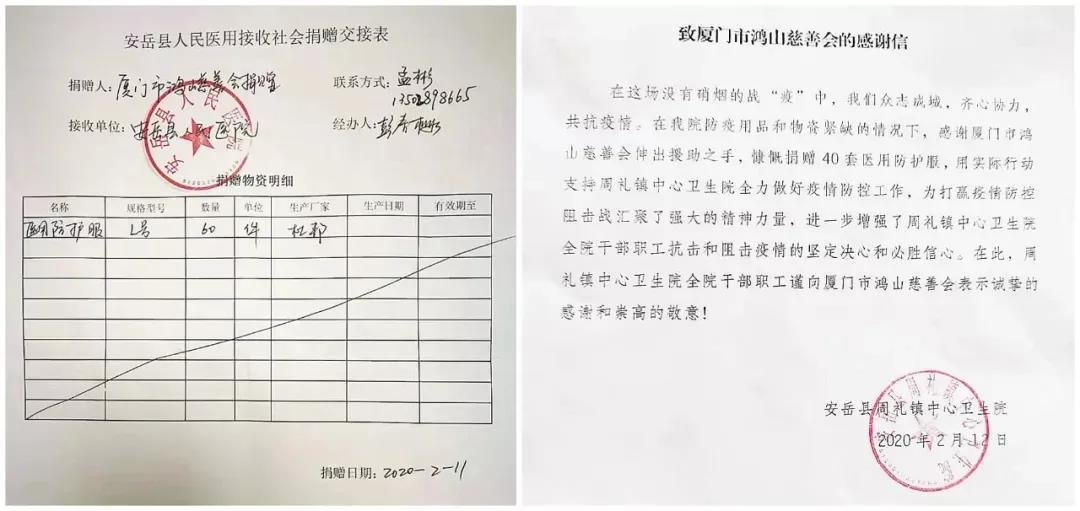 安岳县人民医用接收社会捐赠交接表
捐赠人：厦门市鸿山慈善会捐赠
联系方式：孟彬
13502898665
接收单位：安岳县人民医院
经办人：彭
捐赠物资明细
名称 规格型号 数量 单位 生产厂家 生产日期 有效期至
医用防护服 L号 60 件 杜邦
捐赠日期：2020-2-11
致厦门市鸿山慈善会的感谢信
在这场没有硝烟的战“疫”中，我们众志成城，齐心协力，
共抗疫情。在我院防疫用品和物资紧缺的情况下，感谢厦门市鸿
山慈善会伸出援助之手，慷慨捐赠 40 套医用防护服，用实际行动
支持周礼镇中心卫生院全力做好疫情防控工作，为打赢疫情防控
阻击战汇聚了强大的精神力量，进一步增强了周礼镇中心卫生院
全院干部职工抗击和阻击疫情的坚定决心和必胜信心。在此，周
礼镇中心卫生院全院干部职工谨向厦门市鸿山慈善会表示诚挚的
感谢和崇高的敬意！
安岳县周礼镇中心卫生院
2020 年 2 月 12 日